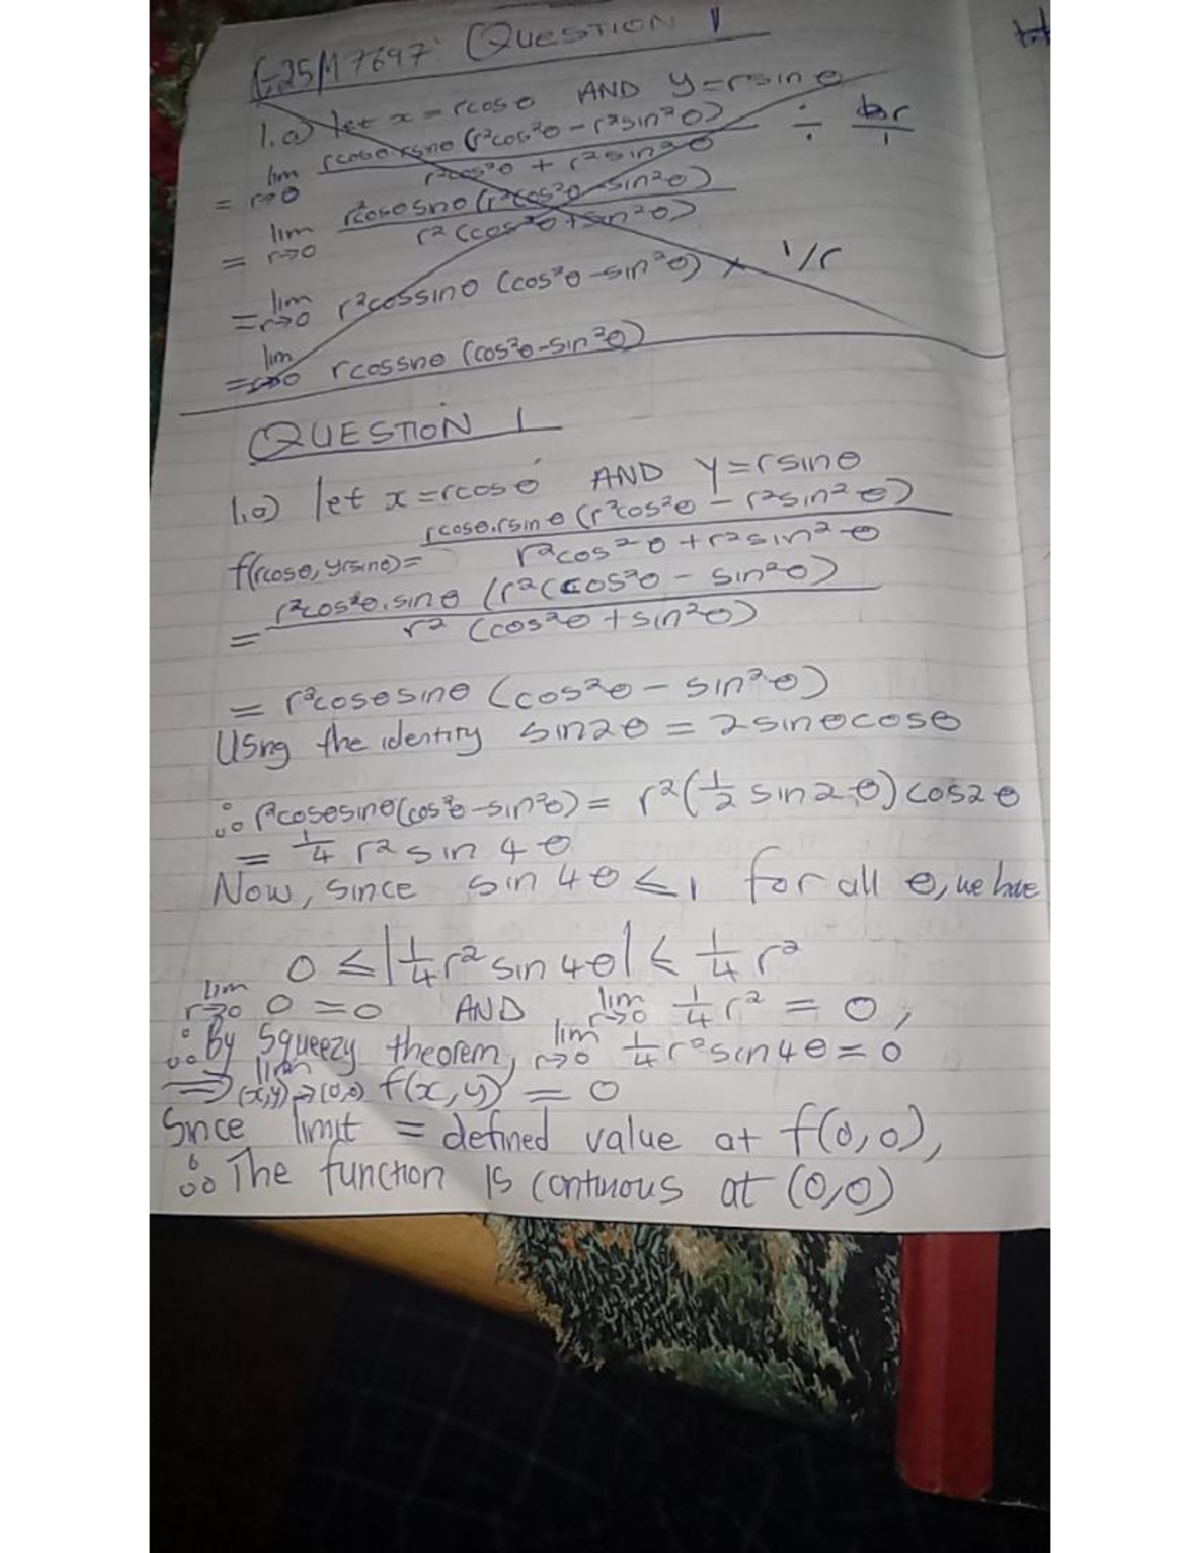 G25M7697 QUESTION 1
1.a) let x = rcosθ AND y = rsinθ
= lim r→0 rcosθ.rsinθ (r²cos²θ − r²sin²θ) / r²cos²θ + r²sin²θ ÷ r/1
= lim r→0 r²cosθsinθ (r²(cos²θ − sin²θ) / r² (cos²θ + sin²θ)
= lim r→0 r²cossinθ (cos²θ − sin²θ) × 1/r
= lim r→0 rcossinθ (cos²θ − sin²θ)
QUESTION 1
1.a) let x = rcosθ AND y = rsinθ
f(rcosθ, yrsinθ) = rcosθ.rsinθ (r²cos²θ − r²sin²θ) / r²cos²θ + r²sin²θ
= r²cosθ.sinθ (r²(cos²θ − sin²θ) / r² (cos²θ + sin²θ)
= r²cosθsinθ (cos²θ − sin²θ)
Using the identity sin2θ = 2sinθcosθ
∴ r²cosθsinθ(cos²θ − sin²θ) = r²(1/2 sin2θ) cos2θ
= 1/4 r² sin 4θ
Now, since sin 4θ ≤ 1 for all θ, we have
0 ≤ |1/4 r² sin 4θ| ≤ 1/4 r²
lim r→0 0 = 0 AND lim r→0 1/4 r² = 0,
∴ By Squeezy theorem, lim r→0 1/4 r² sin4θ = 0
⟹ lim (x,y)→(0,0) f(x,y) = 0
Since limit = defined value at f(0,0),
∴ The function is continous at (0,0)